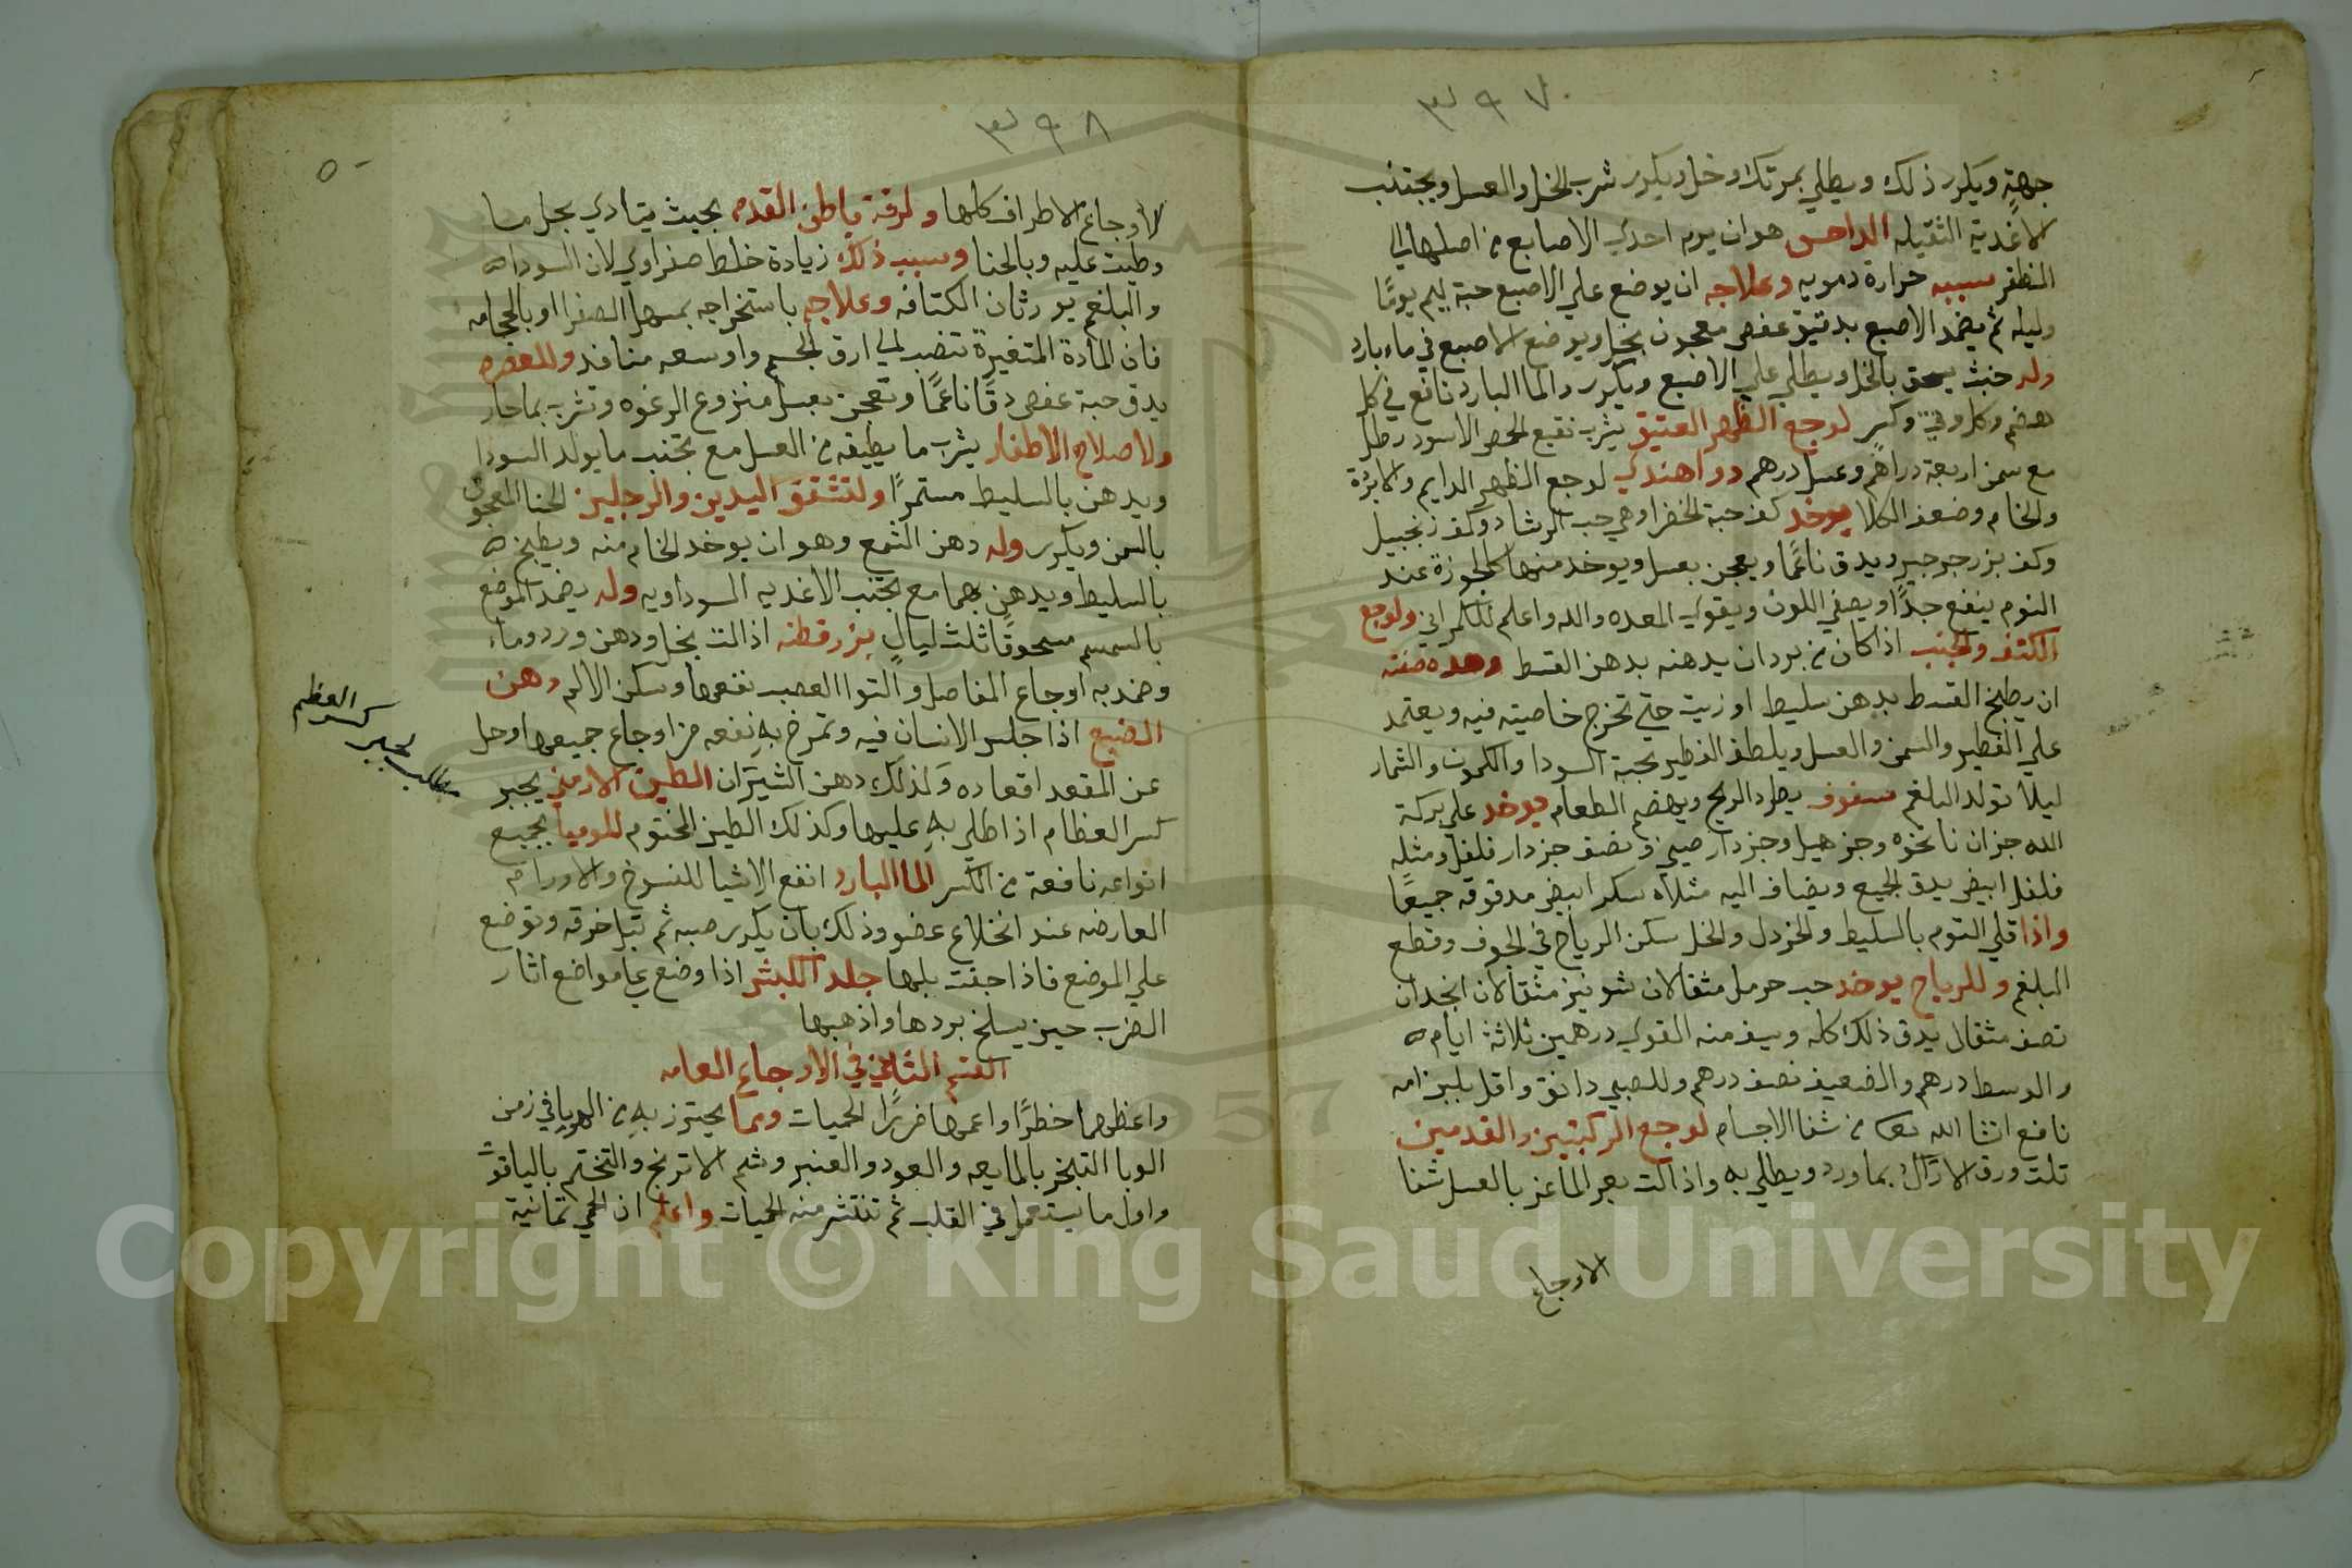 ٣٩٧
جهة ويكرر ذلك ويطلي بمرتك وخل ويكرر شرب الخل والعسل ويجتنب
الاغدية الثقيله الداحس هو ان يرم احدي الاصابع من اصلها الي
الظفر سببه حرارة دمويه وعلاجه ان يوضع علي الاصبع حبة ليم يومًا
وليله ثم يضمد الاصبع بدقيق عفص معجون بخل ويوضع الاصبع في ماء بارد
وله خبث يسحق بالخل ويطلي علي الاصبع ويكرر والما البارد نافع في كل
هضم وكل وثي وكسر لوجع الظهر العتيق يشرب نقيع الحمر الاسود رطل
مع سمن اربعة دراهم وعسل درهم دوا هندي لوجع الظهر الدايم والابردة
والخام وضعف الكلا يوخد كف حبة الخضرا وهي حب الرشاد وكف زنجبيل
وكف بزر جرجير ويدق ناعمًا ويعجن بعسل ويوخد منها كالجوزة عند
النوم ينفع جدًا ويصفي اللون ويقوي المعده والله واعلم للكمراني ولوجع
الكتف والجنب اذا كان من برد ان يدهنه بدهن القسط وهده صفته
ان يطبخ القسط بدهن سليط او زيت حتي تخرج خاصيته فيه ويعتمد
علي الفطير والسمن والعسل ويلطف الفطير بحبة السودا والكمون والشمار
ليلا تولد البلغم سفوف يطرد الريح ويهضم الطعام يوخد علي بركة
الله جزان نانخوه وجز هيل وجز دار صيني ونصف جز دار فلفل ومثله
فلفل ابيض يدق الجميع ويضاف اليه مثلاه سكر ابيض مدقوقه جميعًا
واذا قلي التوم بالسليط والخردل والخل سكن الرياح في الجوف وقطع
البلغم وللرياح يوخد حب حرمل مثقالان شونيز مثقالان انجدان
نصف مثقال يدق ذلك كله ويسف منه القوي درهمين ثلاثة ايام
والوسط درهم والضعيف نصف درهم وللصبي دانق واقل بلبن امه
نافع انشا الله تعا من شفا الاجسام لوجع الركبتين والقدمين
تلت ورق الاراك بماورد ويطلي به واذا لت بعر الماعز بالعسل شفا
الاوجاع
٣٩٨
٥٠
لاوجاع الاطراف كلها ولرقة باطن القدم بحيث يتادي بكل ما
وطيت عليه وبالحنا وسبب ذلك زيادة خلط صفراوي لان السودا
والبلغم يورثان الكثافه وعلاجه باستخراجه بمسهل الصفرا او بالحجامه
فان المادة المتغيرة تنصب الي ارق الجسم واوسعه منافد وللعصره
يدق حبة عفص دقًا ناعمًا وتعجن بعسل منزوع الرغوه وتشرب بما حار
ولاصلاح الاظفار يشرب ما يطيقه من العسل مع تجنب ما يولد السودا
ويدهن بالسليط مستمرًا ولتشقق اليدين والرجلين الحنا المعجون
بالسمن ويكرر وله دهن الشمع وهو ان يوخد الخام منه ويطبخ
بالسليط ويدهن بهما مع تجنب الاغديه السوداويه وله يضمد الموضع
بالسمسم مسحوقًا ثلث ليالٍ بزر قطنه اذا لت بخل ودهن ورد وماء
وضمد به اوجاع المفاصل والتوا العصب نفعها وسكن الالم دهن
الضبع اذا جلس الانسان فيه وتمرخ به نفعه من اوجاع جميعها وحل
عن المقعد اقعاده وكذلك دهن الثيران الطين الارمني يجبر
كسر العظام اذا طلي به عليها وكذلك الطين المختوم للموميا بجميع
انواعه نافعة من الكسر الما البارد انفع الاشيا للفسوخ والاورام
العارضه عند انخلاع عضو وذلك بان يكرر صبه ثم تبل خرقه وتوضع
علي الموضع فاذا جفت بلها جلد الكبش اذا وضع علي مواضع اثار
الضرب حين يسلخ بردها واذهبها
القسم الثاني في الاوجاع العامه
واعظمها خطرًا واعمها ضررًا الحميات ومما يحترز به من الوبا في زمن
الوبا التبخر بالمايعه والعود والعنبر وشم الاترنج والتختم بالياقوت
واول ما يستعمل في القلب ثم تنتشر منه الحميات واعلم ان الحمي ثمانية
مطلب لجبر كسر العظم
Copyright © King Saud University